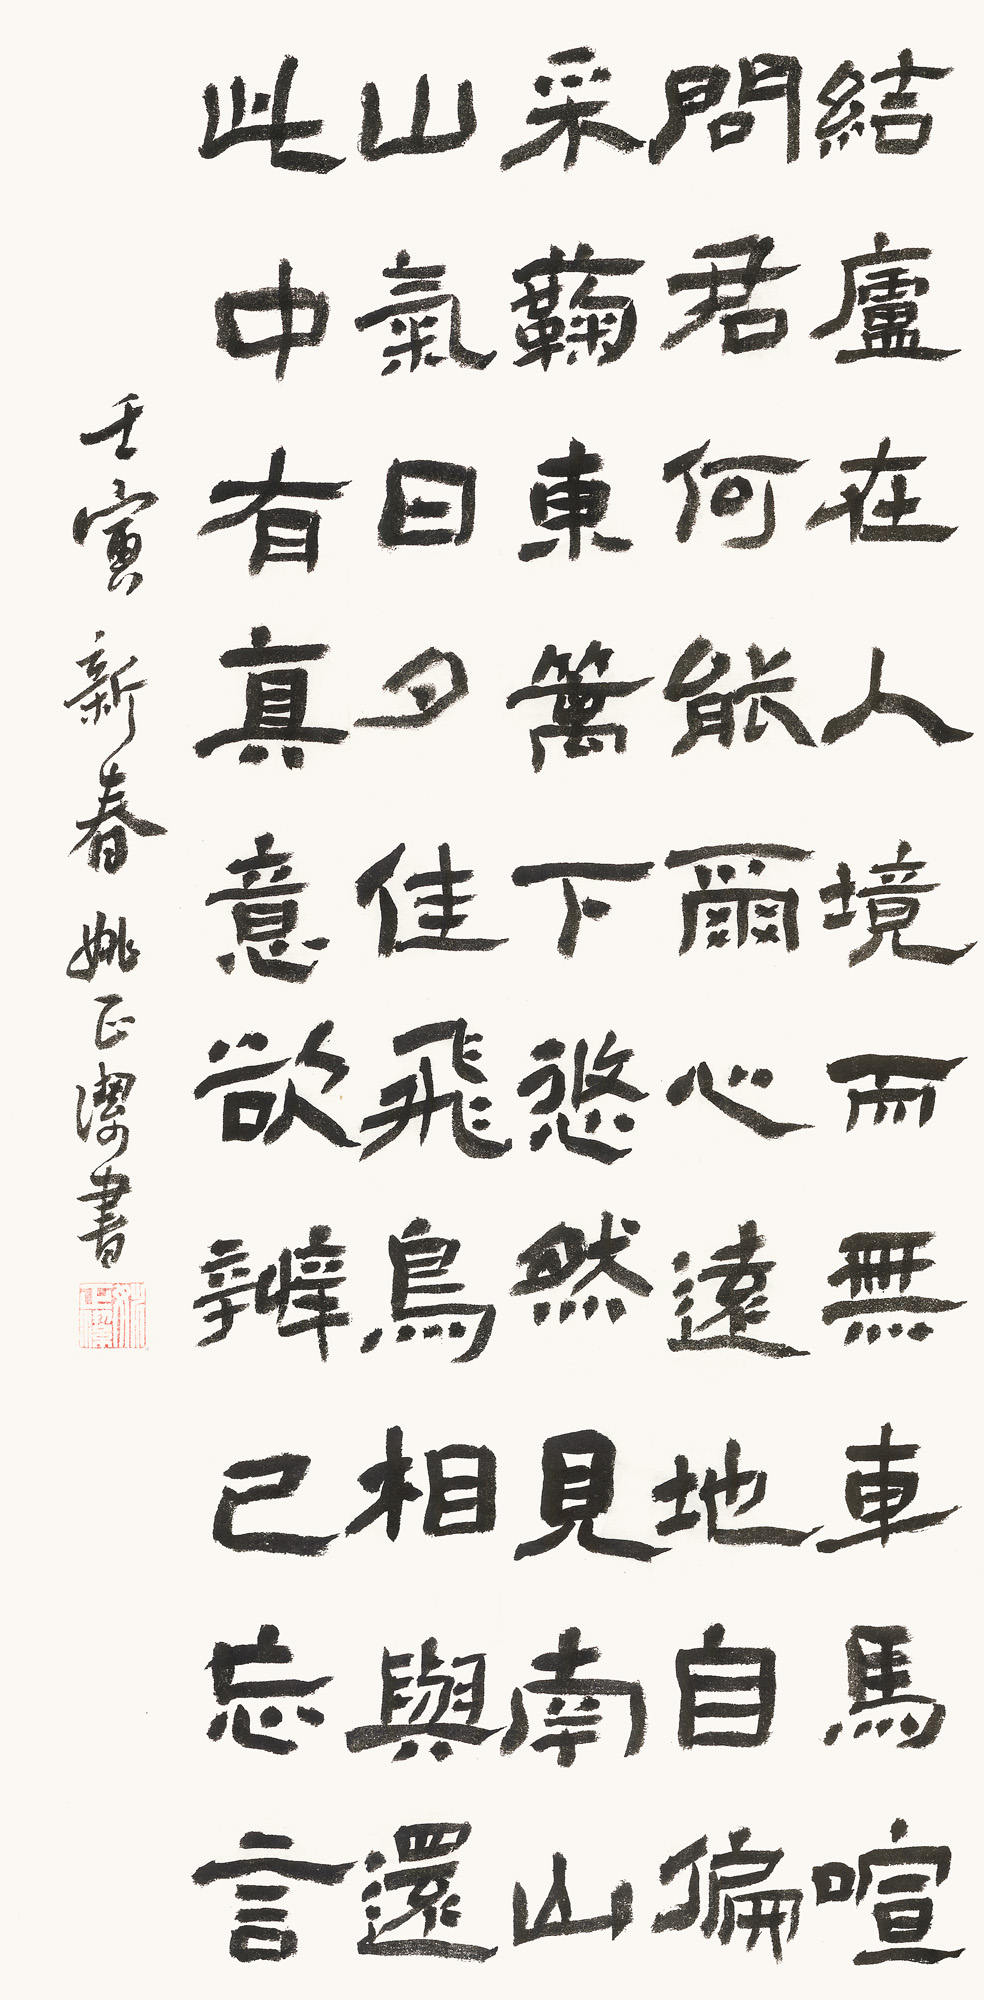 結廬在人境而無車馬喧
問君何能爾心遠地自偏
采蘜東篱下悠然見南山
山氣日夕佳飛鳥相與還
此中有真意欲辨已忘言
壬寅新春姚正潔書